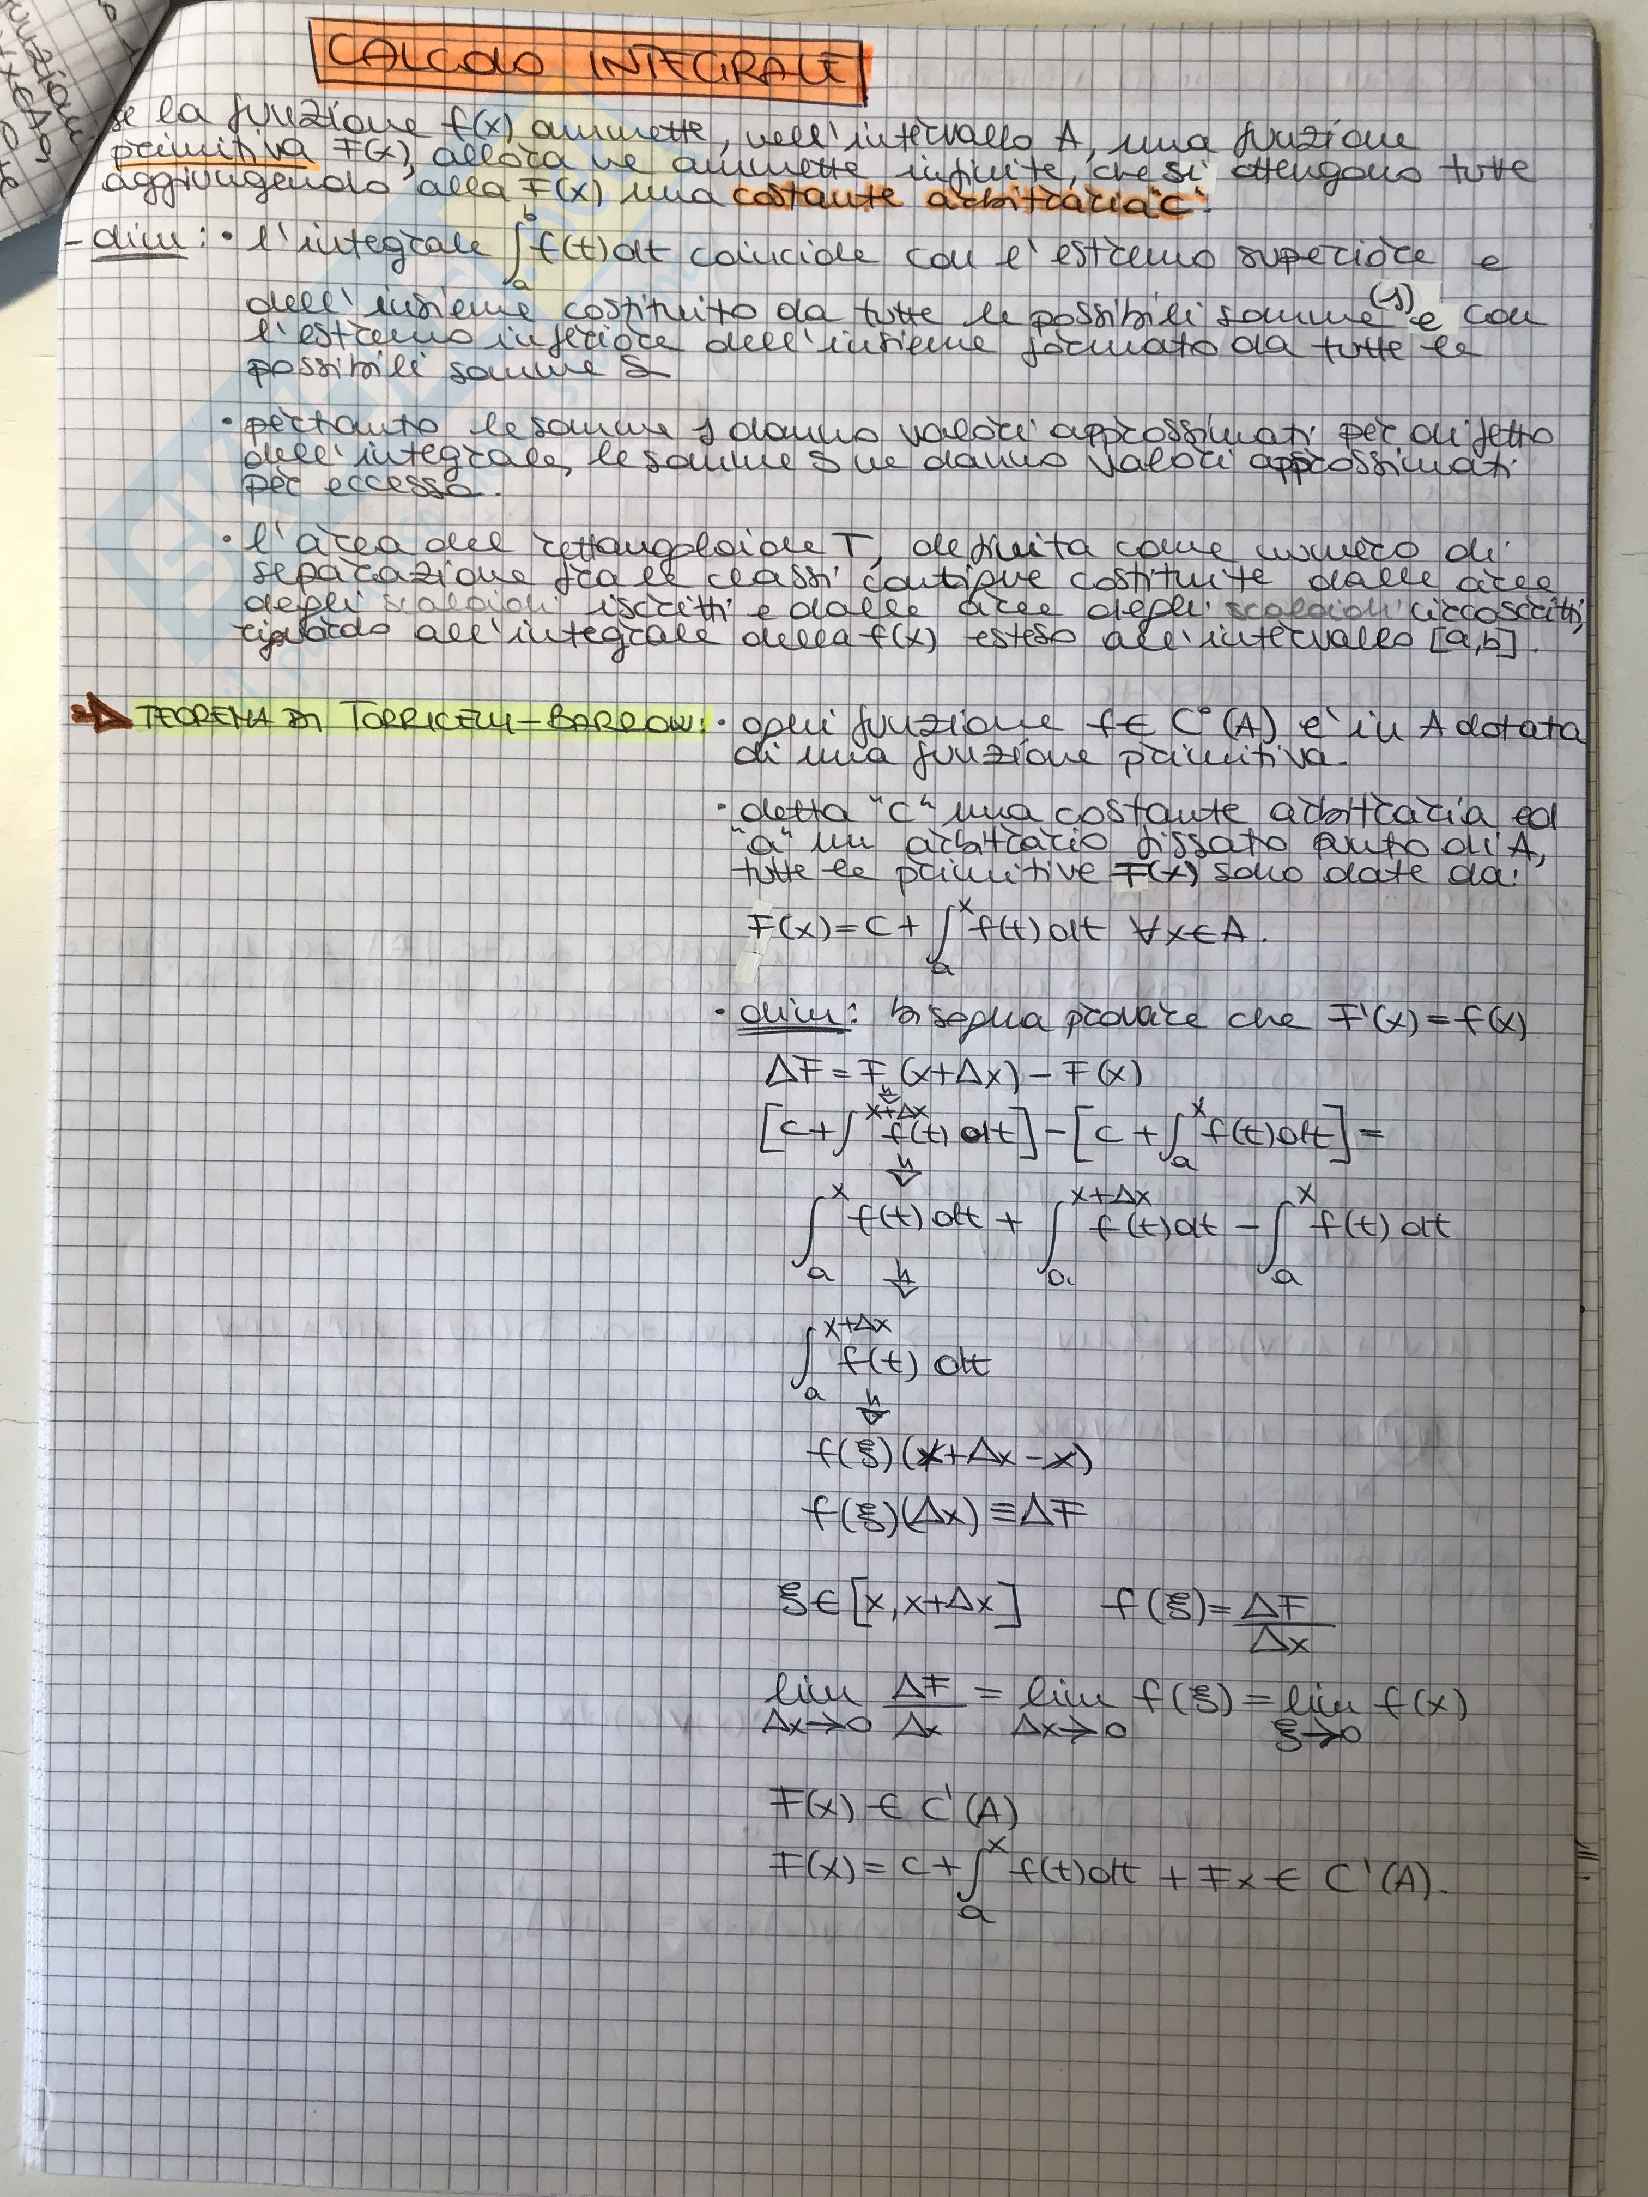 CALCOLO INTEGRALE
se la funzione f(x) ammette, nell'intervallo A, una funzione
primitiva F(x), allora ne ammette infinite, che si ottengono tutte
aggiungendo alla F(x) una costante arbitraria "c".
- dim: • l'integrale ∫_a^b f(t)dt coincide con l'estremo superiore e
dell'insieme costituito da tutte le possibili somme (s) e con
l'estremo inferiore dell'insieme formato da tutte le
possibili somme S
• pertanto le somme s danno valori approssimati per difetto
dell'integrale, le somme S ne danno valori approssimati
per eccesso.
• l'area del rettangoloide T, definita come numero di
separazione fra le classi contigue costituite dalle aree
degli scaloidi iscritti e dalle aree degli scaloidi circoscritti,
riguardo all'integrale della f(x) esteso all'intervallo [a,b].
TEOREMA DI TORRICELLI-BARROW: • ogni funzione f ∈ C°(A) e' in A dotata
di una funzione primitiva.
• detta "c" una costante arbitraria ed
"a" un arbitrario fissato punto di A,
tutte le primitive F(x) sono date da:
F(x) = c + ∫_a^x f(t)dt ∀x∈A.
• dim: bisogna provare che F'(x) = f(x)
ΔF = F(x+Δx) - F(x)
[c + ∫^{x+Δx} f(t)dt] - [c + ∫_a^x f(t)dt] =
∫_a^x f(t)dt + ∫_a^{x+Δx} f(t)dt - ∫_a^x f(t)dt
∫_a^{x+Δx} f(t)dt
f(ξ)(x+Δx-x)
f(ξ)(Δx) = ΔF
ξ ∈ [x, x+Δx] f(ξ) = ΔF/Δx
lim Δx→0 ΔF/Δx = lim Δx→0 f(ξ) = lim ξ→0 f(x)
F(x) ∈ C'(A)
F(x) = c + ∫_a^x f(t)dt + Fx ∈ C'(A).